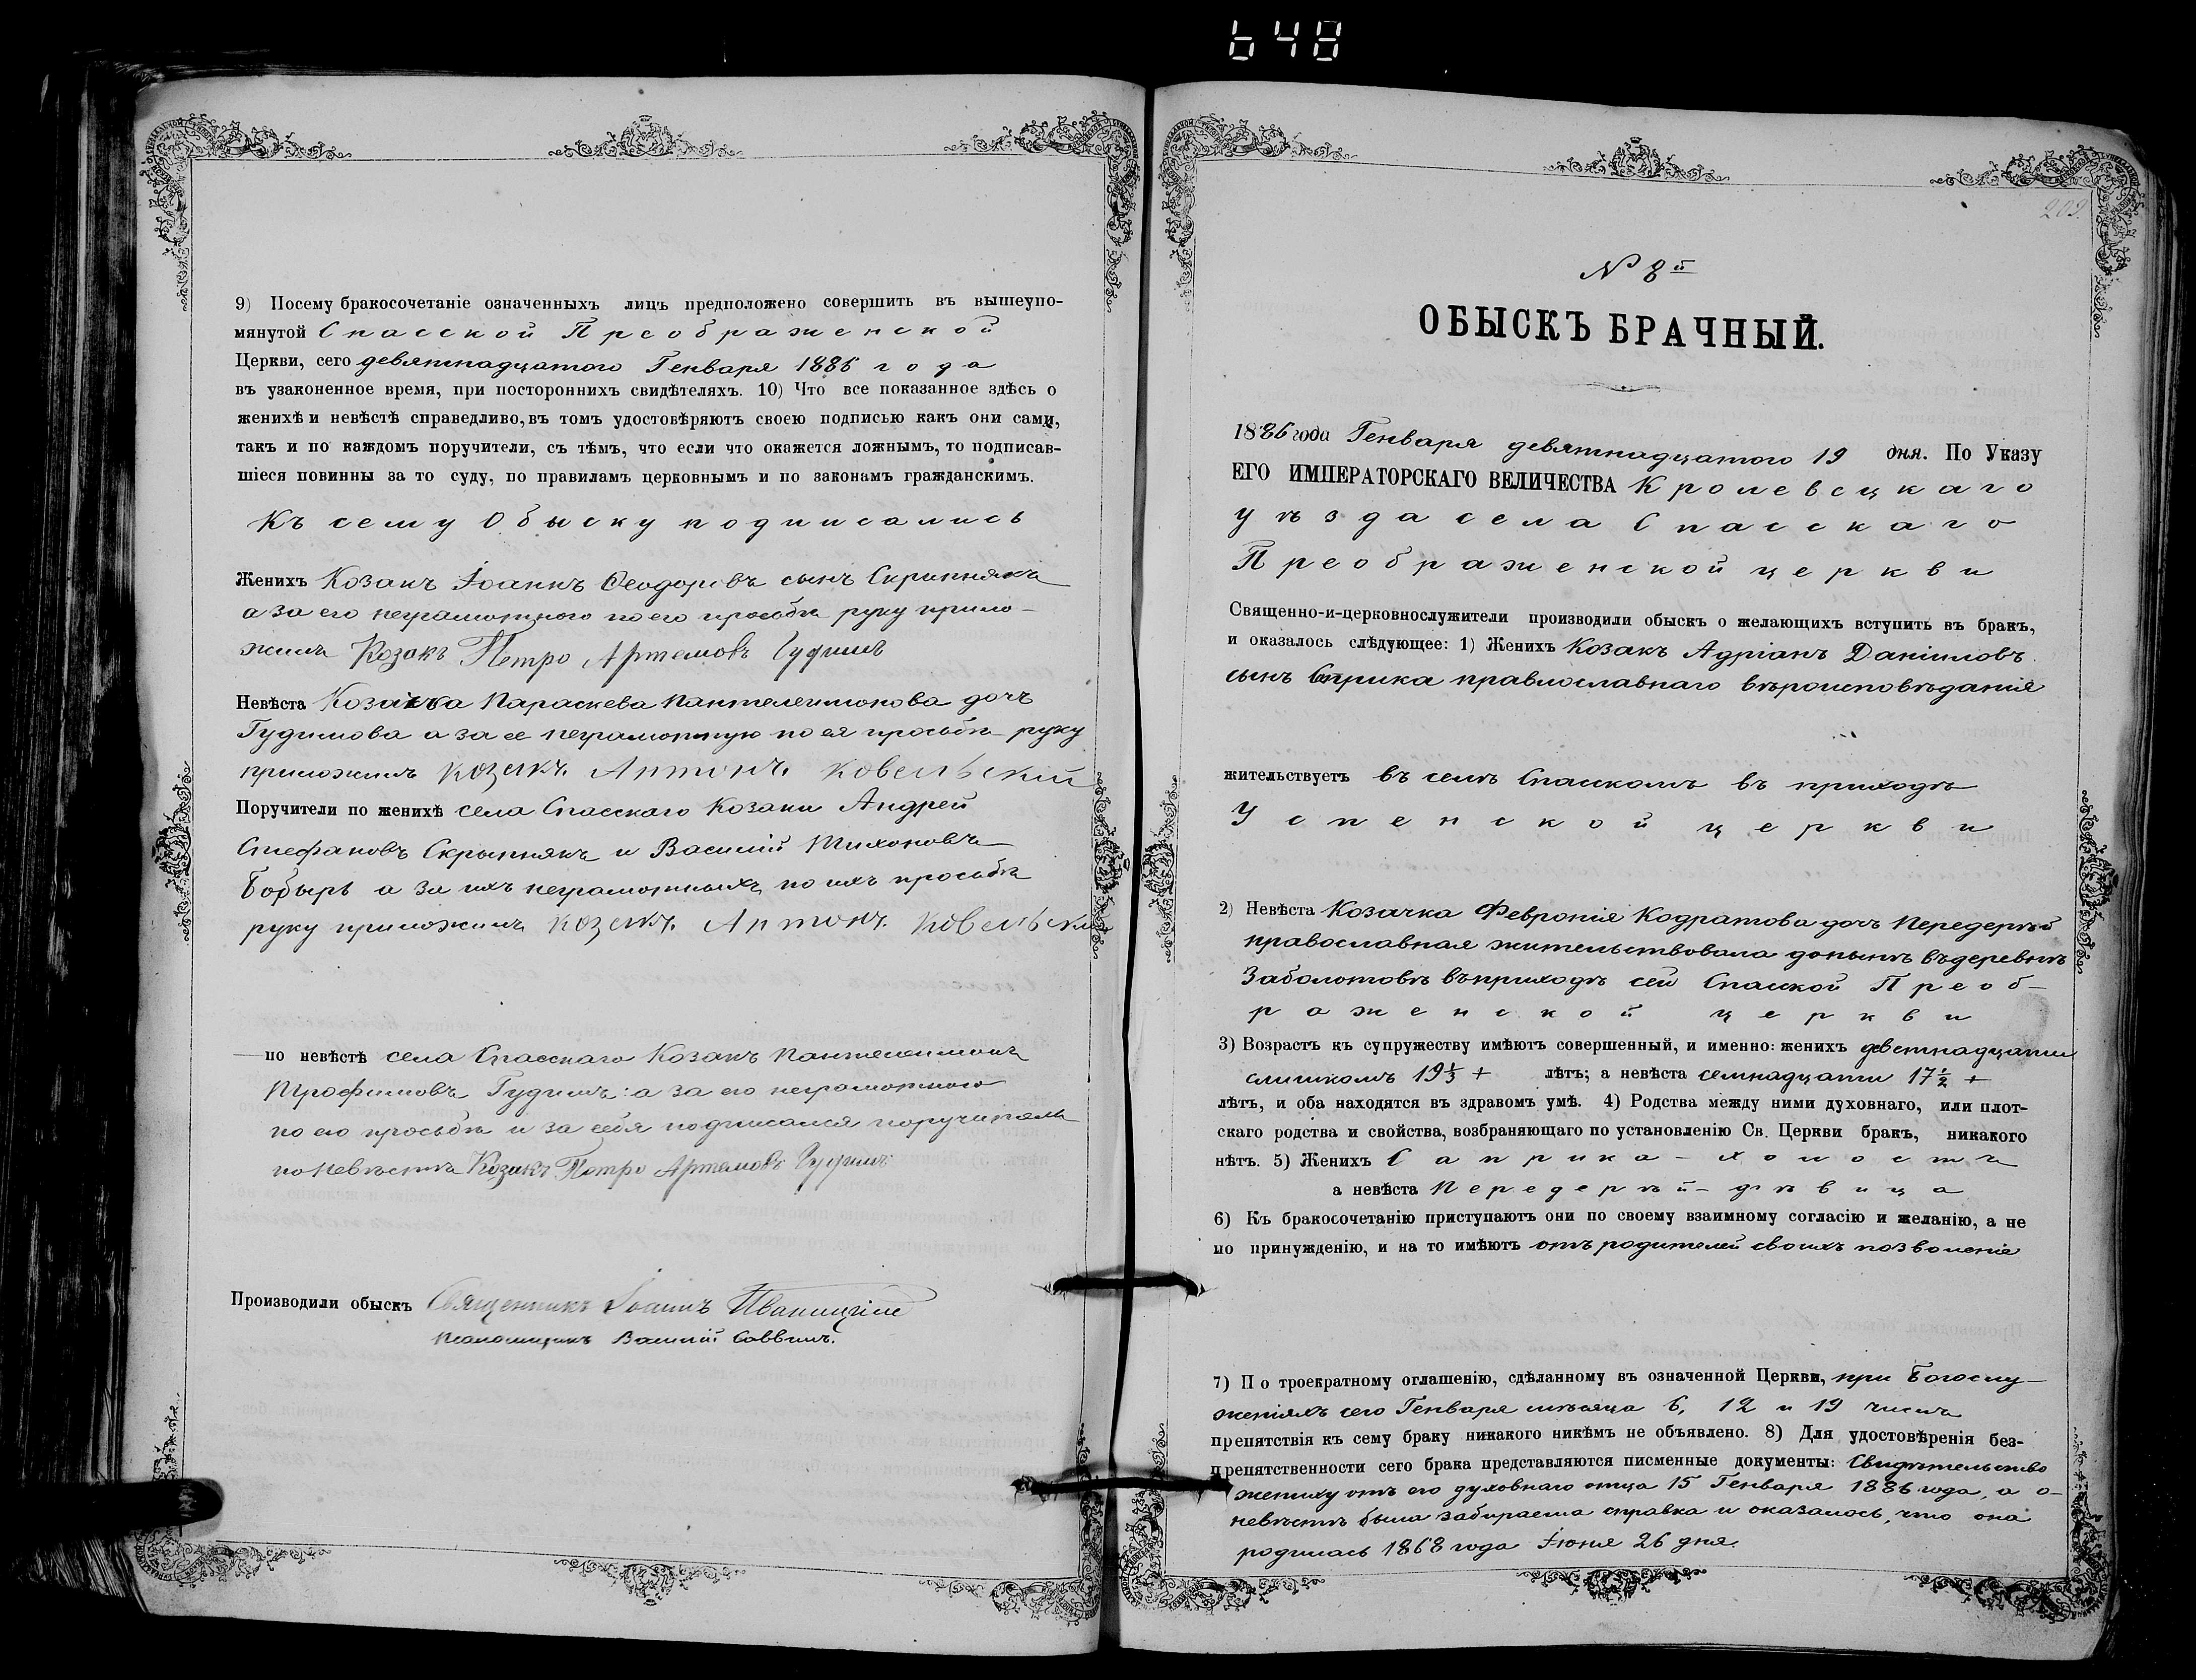 648
9) Посему бракосочетаніе означенныхъ лицъ предположено совершить въ вышеупо-
мянутой Спасской Преображенской
Церкви, сего девятнадцатого Генваря 1886 года
въ узаконенное время, при постороннихъ свидѣтеляхъ. 10) Что все показанное здѣсь о
женихѣ и невѣстѣ справедливо, въ томъ удостовѣряютъ своею подписью какъ они сами,
такъ и по каждомъ поручители, съ тѣмъ, что если что окажется ложнымъ, то подписав-
шіеся повинны за то суду, по правиламъ церковнымъ и по законамъ гражданскимъ.
Къ сему Обыску подписались
Женихъ Козакъ Іоаннъ Ѳеодоровъ сынъ Скрипнякъ
а за его неграмотного по его просьбѣ руку прило-
жилъ Козакъ Петро Артемовъ Гудимъ
Невѣста Козачка Параскева Пантелеимонова дочь
Гудимова а за ее неграмотную по ея просьбѣ руку
приложилъ козакъ Антонъ Ковельскій
Поручители по женихѣ села Спасскаго Козаки Андрей
Стефановъ Скрипнякъ и Василій Тихоновъ
Бобырь а за ихъ неграмотныхъ по ихъ просьбѣ
руку приложилъ козакъ Антонъ Ковельскій
по невѣстѣ села Спасскаго Козакъ Пантелеимонъ
Трофимовъ Гудимъ: а за его неграмотного
по его просьбѣ и за себя подписался поручитель
по невѣстѣ Козакъ Петро Артемовъ Гудимъ
Производили обыскъ Священникъ Іоаннъ
Псаломщикъ Василій Саввичъ.
209.
№ 8й
ОБЫСКЪ БРАЧНЫЙ.
1886 года Генваря девятнадцатого 19 дня. По Указу
ЕГО ИМПЕРАТОРСКАГО ВЕЛИЧЕСТВА Кролевецкаго
уѣзда села Спасскаго
Преображенской церкви
Священно-и-церковнослужители производили обыскъ о желающихъ вступить въ бракъ,
и оказалось слѣдующее: 1) Женихъ Козакъ Адріанъ Даніиловъ
сынъ Саприка православнаго вѣроисповѣданія
жительствуетъ въ селѣ Спаскомъ въ приходѣ
Успенской церкви
2) Невѣста Козачка Февронія Кодратова дочь Передерѣй
православная жительствовала донынѣ въ деревнѣ
Заболотовѣ въ приходѣ сей Спаской Преоб-
раженской церкви
3) Возрастъ къ супружеству имѣютъ совершенный, и именно: женихъ девтнадцати
слишкомъ 19⅓ + лѣтъ; а невѣста семнадцати 17½ +
лѣтъ, и оба находятся въ здравомъ умѣ. 4) Родства между ними духовнаго, или плот-
скаго родства и свойства, возбраняющаго по установленію Св. Церкви бракъ, никакого
нѣтъ. 5) Женихъ Саприка - холостъ
а невѣста Передерѣй - дѣвица
6) Къ бракосочетанію приступаютъ они по своему взаимному согласію и желанію, а не
по принужденію, и на то имѣютъ отъ родителей своихъ позволеніе
7) По троекратному оглашенію, сдѣланному въ означенной Церкви, при Богослу-
женіяхъ сего Генваря мѣсяца 6, 12 и 19 числъ
препятствія къ сему браку никакого никѣмъ не объявлено. 8) Для удостовѣренія без-
препятственности сего брака представляются писменные документы: Свидѣтельство
жениху отъ его духовнаго отца 15 Генваря 1886 года, а о
невѣстѣ была забираема справка и оказалось, что она
родилась 1868 года Іюня 26 дня.